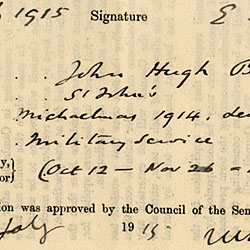 1915 Signature E
John Hugh
St John's
Michaelmas 1914. de
Military Service
y,
or} (Oct 12 – Nov 26 –
ion was approved by the Council of the Sen
July 1915